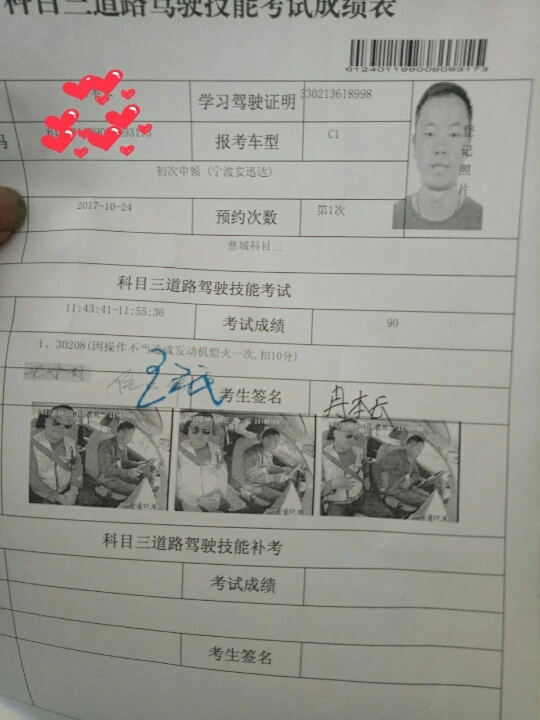 科目三道路驾驶技能考试成绩表
612401199009093173
学习驾驶证明 330213618998
码 报考车型 C1
登记照片
初次申领（宁波安迅达）
2017-10-24 预约次数 第1次
慈城科目三
科目三道路驾驶技能考试
11:43:41-11:55:36 考试成绩 90
1、30208(因操作不当造成发动机熄火一次,扣10分)
考生签名
科目三道路驾驶技能补考
考试成绩
考生签名